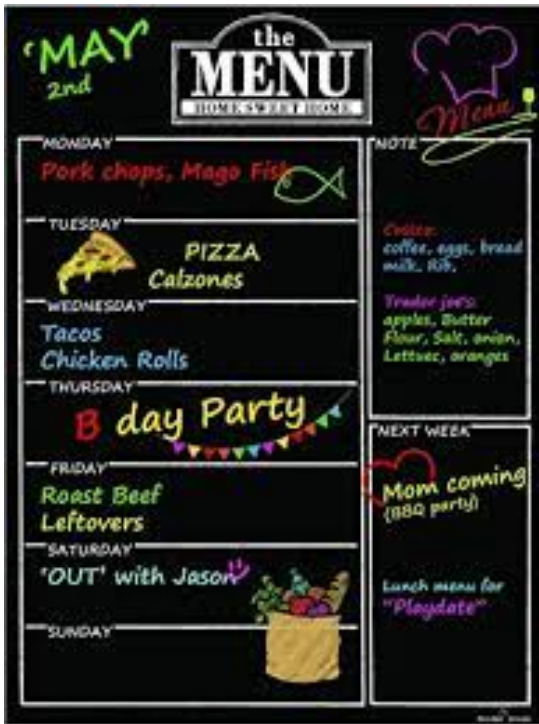 'MAY'
2nd
the
MENU
HOME SWEET HOME
Menu
MONDAY
Pork chops, Mago Fish
TUESDAY
PIZZA
Calzones
WEDNESDAY
Tacos
Chicken Rolls
THURSDAY
B day Party
FRIDAY
Roast Beef
Leftovers
SATURDAY
'OUT' with Jason
SUNDAY
NOTE
Costco:
coffee, eggs, bread
milk, Rib,
Trader Joe's:
apples, Butter
Flour, Salt, onion,
Lettuec, oranges
NEXT WEEK
Mom coming
(BBQ party)
Lunch menu for
"Playdate"